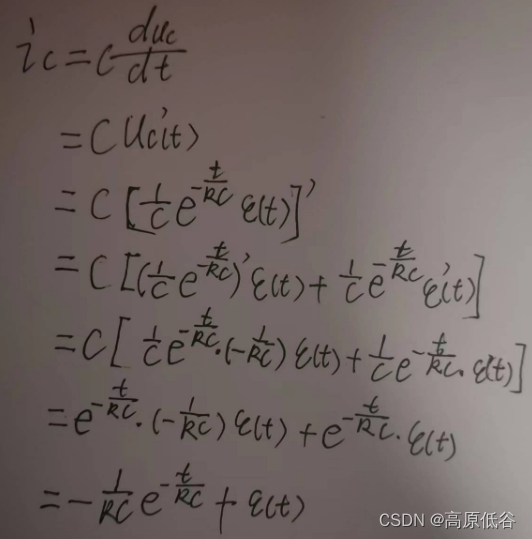 ic = C duc/dt
= C Uc'(t)
= C [1/C e^(-t/RC) ε(t)]'
= C [(1/C e^(-t/RC))' ε(t) + 1/C e^(-t/RC) ε'(t)]
= C [1/C e^(-t/RC) · (-1/RC) ε(t) + 1/C e^(-t/RC) · ε(t)]
= e^(-t/RC) · (-1/RC) ε(t) + e^(-t/RC) · ε(t)
= -1/RC e^(-t/RC) + ε(t)
CSDN @高原低谷